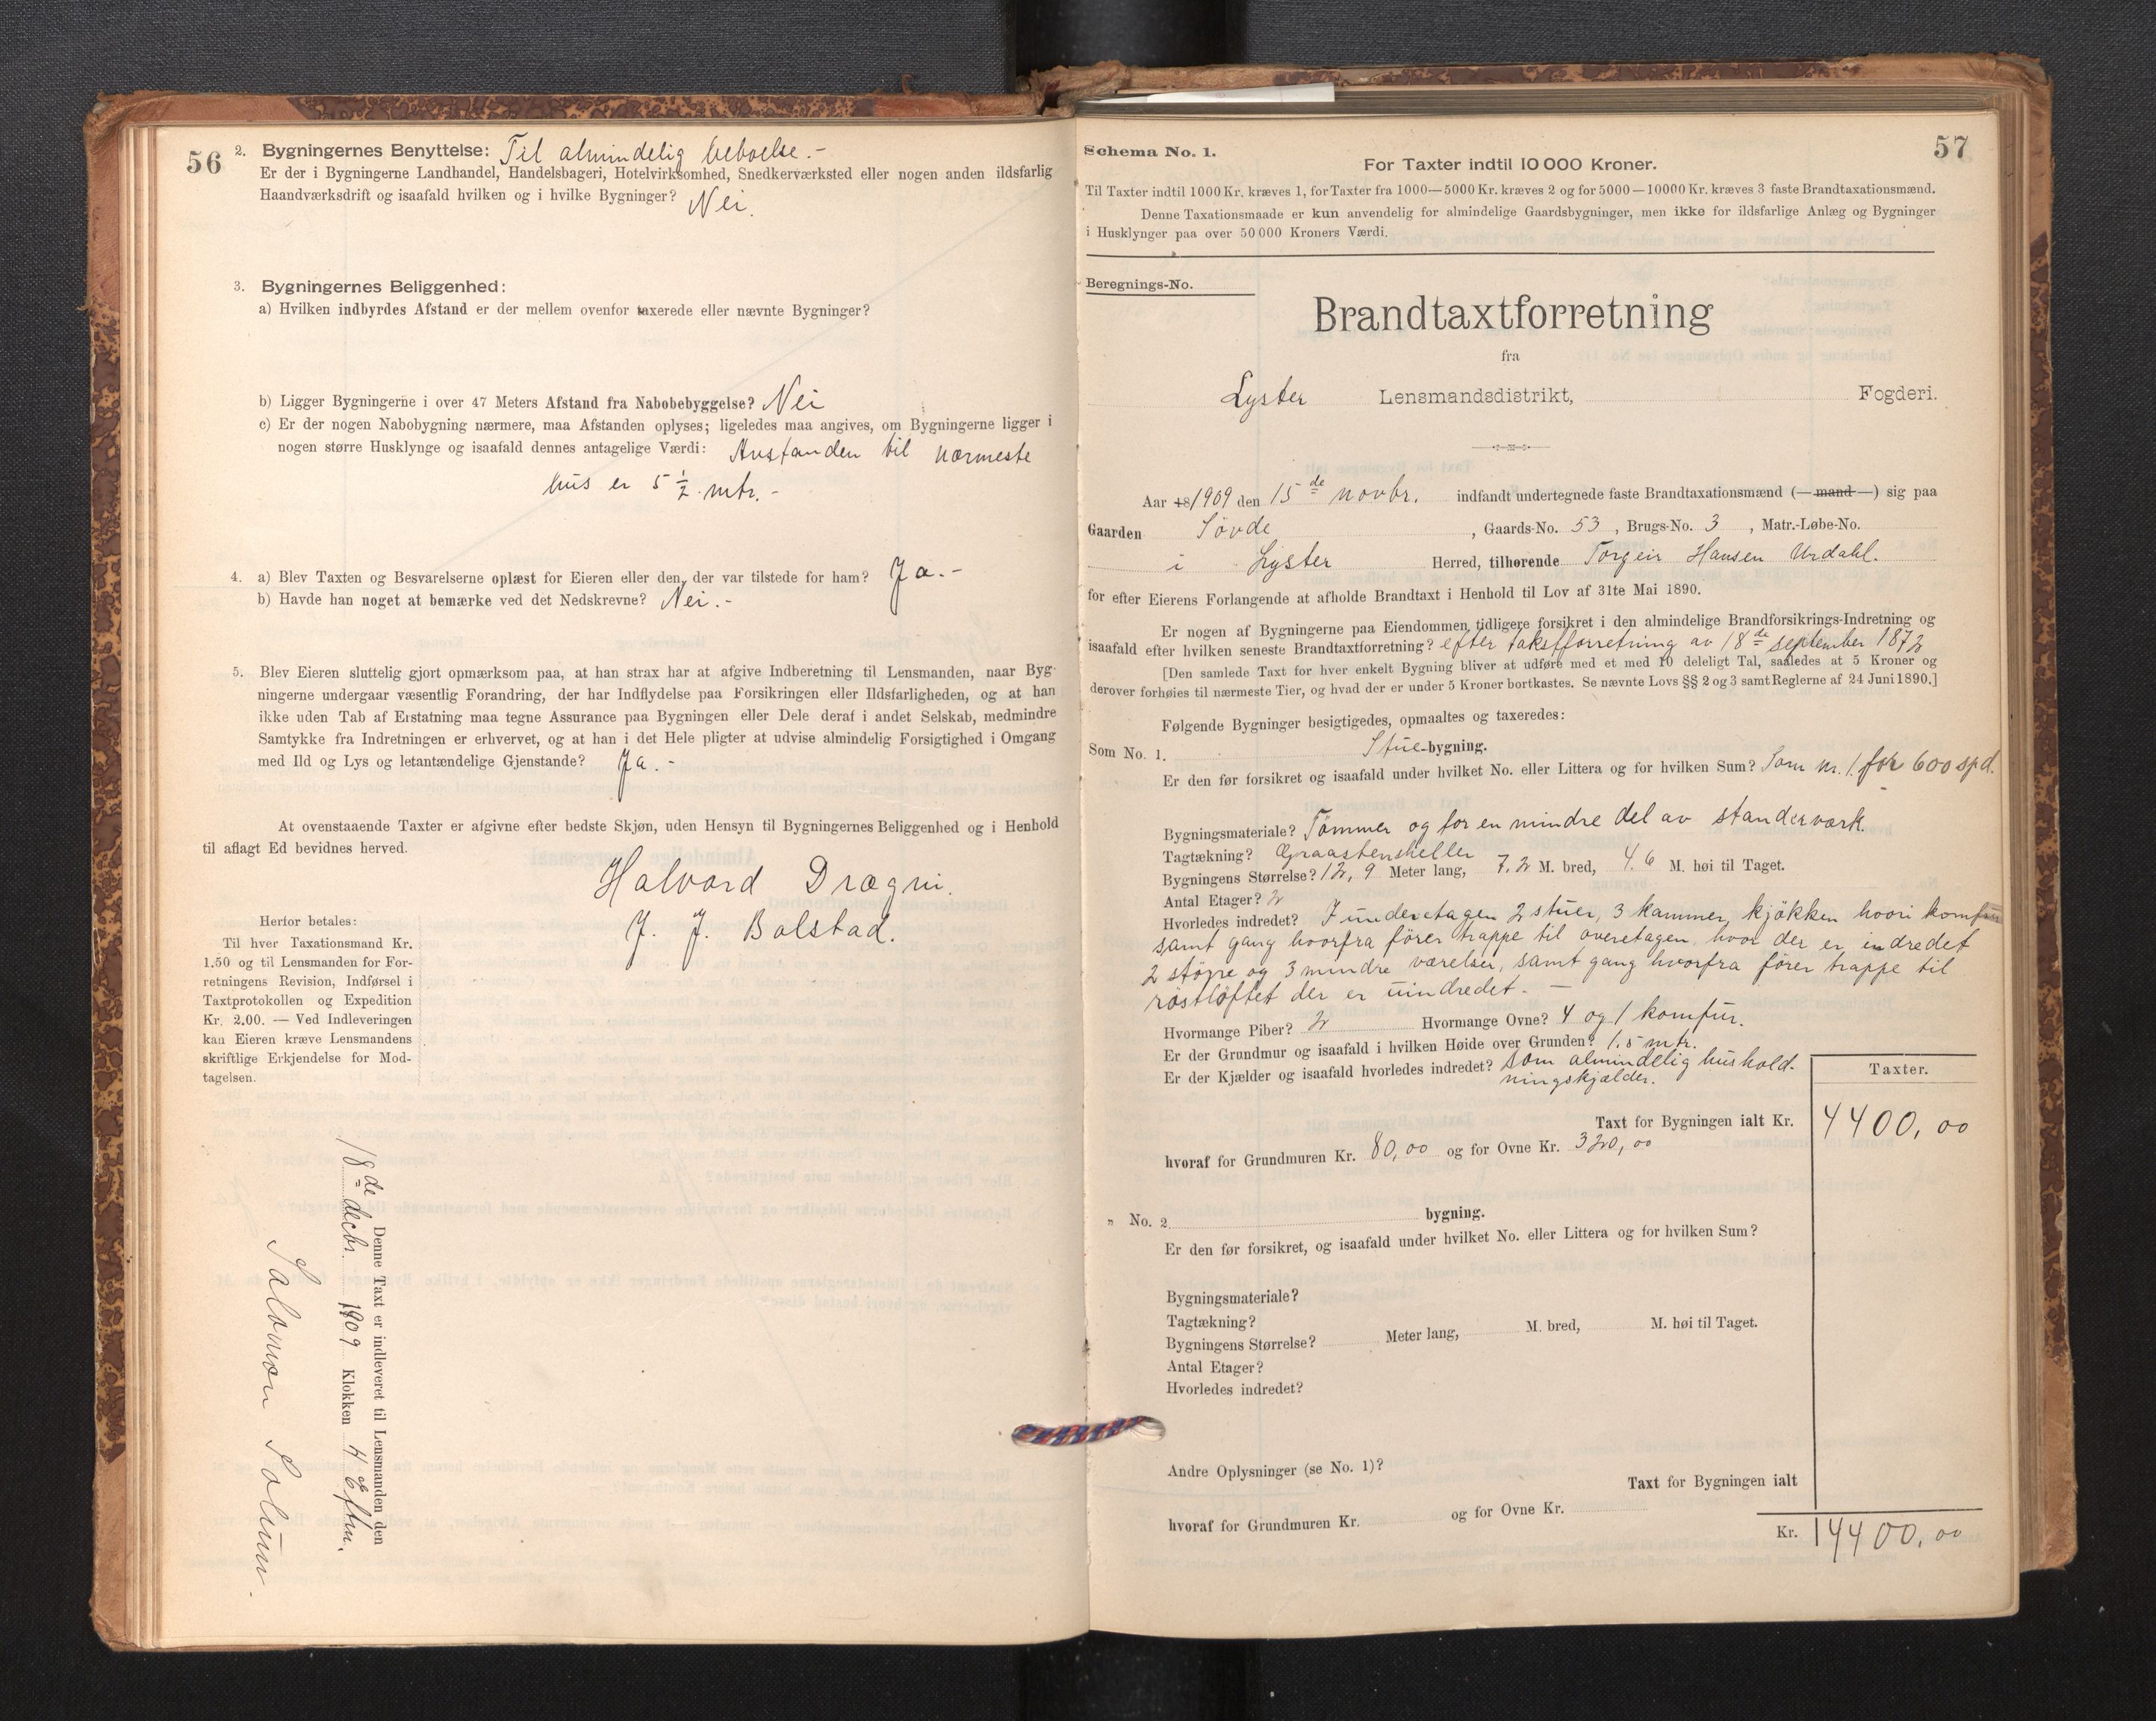 56
2. Bygningernes Benyttelse: Til almindelig beboelse.-
Er der i Bygningerne Landhandel, Handelsbageri, Hotelvirksomhed, Snedkerværksted eller nogen anden ildsfarlig
Haandværksdrift og isaafald hvilken og i hvilke Bygninger? Nei.
3. Bygningernes Beliggenhed:
a) Hvilken indbyrdes Afstand er der mellem ovenfor taxerede eller nævnte Bygninger?
b) Ligger Bygningerne i over 47 Meters Afstand fra Nabobebyggelse? Nei
c) Er der nogen Nabobygning nærmere, maa Afstanden oplyses; ligeledes maa angives, om Bygningerne ligger i
nogen større Husklynge og isaafald dennes antagelige Værdi: Avstanden til nærmeste
hus er 5 1/2 mtr.-
4. a) Blev Taxten og Besvarelserne oplæst for Eieren eller den, der var tilstede for ham? Ja.-
b) Havde han noget at bemærke ved det Nedskrevne? Nei.-
5. Blev Eieren sluttelig gjort opmærksom paa, at han strax har at afgive Indberetning til Lensmanden, naar Byg-
ningerne undergaar væsentlig Forandring, der har Indflydelse paa Forsikringen eller Ildsfarligheden, og at han
ikke uden Tab af Erstatning maa tegne Assurance paa Bygningen eller Dele deraf i andet Selskab, medmindre
Samtykke fra Indretningen er erhvervet, og at han i det Hele pligter at udvise almindelig Forsigtighed i Omgang
med Ild og Lys og letantændelige Gjenstande? Ja.-
At ovenstaaende Taxter er afgivne efter bedste Skjøn, uden Hensyn til Bygningernes Beliggenhed og i Henhold
til aflagt Ed bevidnes herved.
Halvard Drægni.
J. J. Bolstad.
Herfor betales:
Til hver Taxationsmand Kr.
1.50 og til Lensmanden for For-
retningens Revision, Indførsel i
Taxtprotokollen og Expedition
Kr. 2.00. — Ved Indleveringen
kan Eieren kræve Lensmandens
skriftlige Erkjendelse for Mod-
tagelsen.
Denne Taxt er indleveret til Lensmanden den
18de decbr. 1909 Klokken 4 Eftm.
Salomon Solum.
57
Schema No. 1.
For Taxter indtil 10 000 Kroner.
Til Taxter indtil 1000 Kr. kræves 1, for Taxter fra 1000—5000 Kr. kræves 2 og for 5000—10000 Kr. kræves 3 faste Brandtaxationsmænd.
Denne Taxationsmaade er kun anvendelig for almindelige Gaardsbygninger, men ikke for ildsfarlige Anlæg og Bygninger
i Husklynger paa over 50 000 Kroners Værdi.
Beregnings-No.
Brandtaxtforretning
fra
Lyster Lensmandsdistrikt, Fogderi.
Aar 18/1909 den 15de novbr. indfandt undertegnede faste Brandtaxationsmænd (—mand—) sig paa
Gaarden Søvde, Gaards-No. 53, Brugs-No. 3, Matr.-Løbe-No.
i Lyster Herred, tilhørende Torgeir Hansen Urdahl.
for efter Eierens Forlangende at afholde Brandtaxt i Henhold til Lov af 31te Mai 1890.
Er nogen af Bygningerne paa Eiendommen tidligere forsikret i den almindelige Brandforsikrings-Indretning og
isaafald efter hvilken seneste Brandtaxtforretning? efter takstforretning av 18de september 1872
[Den samlede Taxt for hver enkelt Bygning bliver at udføre med et med 10 deleligt Tal, saaledes at 5 Kroner og
derover forhøies til nærmeste Tier, og hvad der er under 5 Kroner bortkastes. Se nævnte Lovs §§ 2 og 3 samt Reglerne af 24 Juni 1890.]
Følgende Bygninger besigtigedes, opmaaltes og taxeredes:
Som No. 1. Stue-bygning.
Er den før forsikret og isaafald under hvilket No. eller Littera og for hvilken Sum? Som nr. 1. for 600 spd.
Bygningsmateriale? Tømmer og for en mindre del av standerværk.
Tagtækning? Graastensheller
Bygningens Størrelse? 12,9 Meter lang, 7,2 M. bred, 4.6 M. høi til Taget.
Antal Etager? 2
Hvorledes indredet? I underetagen 2 stuer, 3 kammer, kjøkken hvori komfur
samt gang hvorfra fører trappe til overetagen, hvor der er indredet
2 større og 3 mindre værelser, samt gang hvorfra fører trappe til
røstløftet der er uindredet. —
Hvormange Piber? 2 Hvormange Ovne? 4 og 1 komfur.
Er der Grundmur og isaafald i hvilken Høide over Grunden? 1.5 mtr.
Er der Kjælder og isaafald hvorledes indredet? som almindelig hushold-
ningskjælder.
Taxter.
Taxt for Bygningen ialt Kr. 4400,00
hvoraf for Grundmuren Kr. 80,00 og for Ovne Kr. 320,00
„ No. 2 bygning.
Er den før forsikret, og isaafald under hvilket No. eller Littera og for hvilken Sum?
Bygningsmateriale?
Tagtækning?
Bygningens Størrelse? Meter lang, M. bred, M. høi til Taget.
Antal Etager?
Hvorledes indredet?
Andre Oplysninger (se No. 1)?
Taxt for Bygningen ialt
hvoraf for Grundmuren Kr. og for Ovne Kr.
Kr. 4400,00